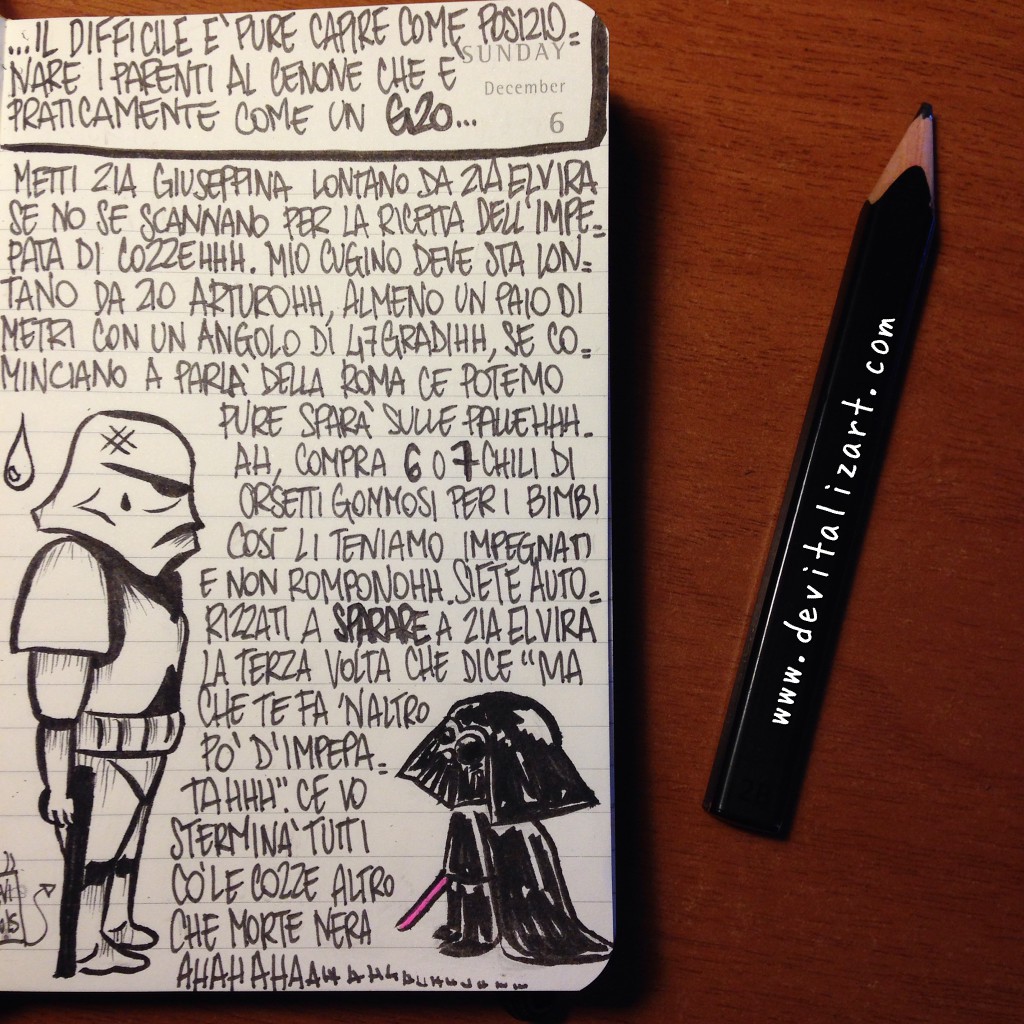 ...IL DIFFICILE E' PURE CAPIRE COME POSIZIO=
NARE I PARENTI AL CENONE CHE E'
PRATICAMENTE COME UN G20...
SUNDAY
December
6
METTI ZIA GIUSEPPINA LONTANO DA ZIA ELVIRA
SE NO SE SCANNANO PER LA RICETTA DELL'IMPE=
PATA DI COZZEHHH. MIO CUGINO DEVE STA LON=
TANO DA ZIO ARTUROHH, ALMENO UN PAIO DI
METRI CON UN ANGOLO DI 47GRADIHH, SE CO=
MINCIANO A PARLA' DELLA ROMA CE POTEMO
PURE SPARA' SULLE PALLEHHH.
AH, COMPRA 6 O 7 CHILI DI
ORSETTI GOMMOSI PER I BIMBI
COSÌ LI TENIAMO IMPEGNATI
E NON ROMPONOHH. SIETE AUTO=
RIZZATI A SPARARE A ZIA ELVIRA
LA TERZA VOLTA CHE DICE "MA
CHE TE FA 'N ALTRO
PO' D'IMPEPA=
TAHHH". CE VO
STERMINA' TUTTI
CO' LE COZZE ALTRO
CHE MORTE NERA
AHAHAHAAHAHAHAHHHHH...
www.devitalizart.com